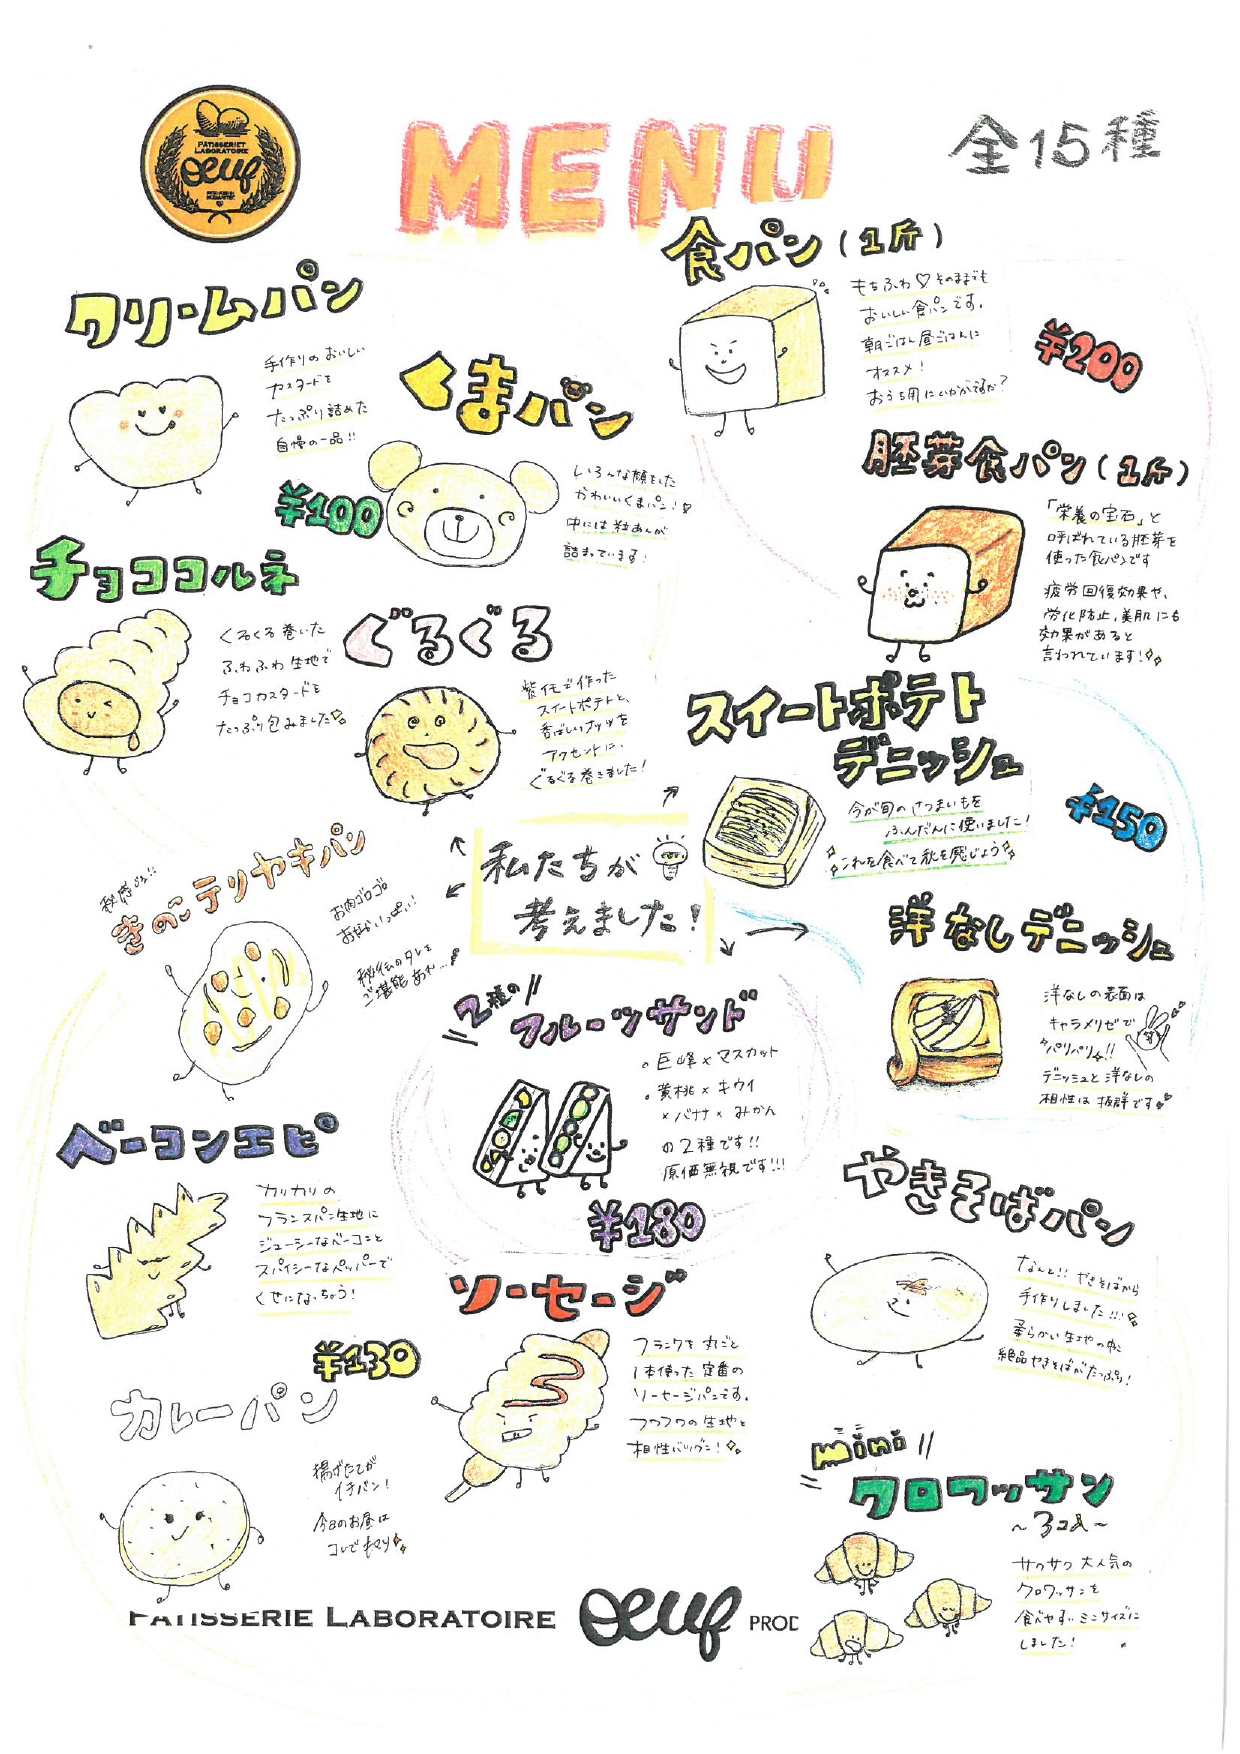 PATISSERIE
LABORATOIRE
Oeuf
MENU
全15種
クリームパン
手作りのおいしい
カスタードを
たっぷり詰めた
自慢の一品!!
くまパン
いろんな顔をした
かわいいくまパン!
中には粒あんが
詰まっています!
¥100
チョココルネ
くるくる巻いた
ふわふわ生地で
チョコカスタードを
たっぷり包みました
ぐるぐる
紫イモで作った
スイートポテトと、
香ばしいナッツを
アクセントに、
ぐるぐる巻きました!
食パン(1斤)
もちふわ♡そのままでも
おいしい食パンです。
朝ごはん昼ごはんに
オススメ!
おうち用にいかがですか?
¥200
胚芽食パン(1斤)
「栄養の宝石」と
呼ばれている胚芽を
使った食パンです
疲労回復効果や、
労化防止、美肌にも
効果があると
言われています!
スイートポテト
デニッシュ
今が旬のさつまいもを
ふんだんに使いました!
これを食べて秋を感じよう
¥150
私たちが
考えました!
洋なしデニッシュ
洋なしの表面は
キャラメリゼで
パリパリ!!
デニッシュと洋なしの
相性は抜群です
きのこテリヤキパン
お肉ゴロゴロ
秘伝のタレを
ご堪能あれ…!
2種の
フルーツサンド
。巨峰×マスカット
。黄桃×キウイ
×バナナ×みかん
の2種です!!
原価無視です!!!
¥180
ベーコンエピ
カリカリの
フランスパン生地に
ジューシーなベーコンと
スパイシーなペッパーで
くせになっちゃう!
¥130
ソーセージ
フランクを丸ごと
1本使った定番の
ソーセージパンです。
フワフワの生地と
相性バツグン!
やきそばパン
なんと!!やきそばから
手作りしました!!!
柔らかい生地の中に
絶品やきそばがたっぷり!
カレーパン
揚げたてが
イチバン!
今日のお昼は
コレでキマリ
mini
クロワッサン
~3コ入~
サクサク大人気の
クロワッサンを
食べやすいミニサイズに
しました!
PATISSERIE LABORATOIRE Oeuf PROD